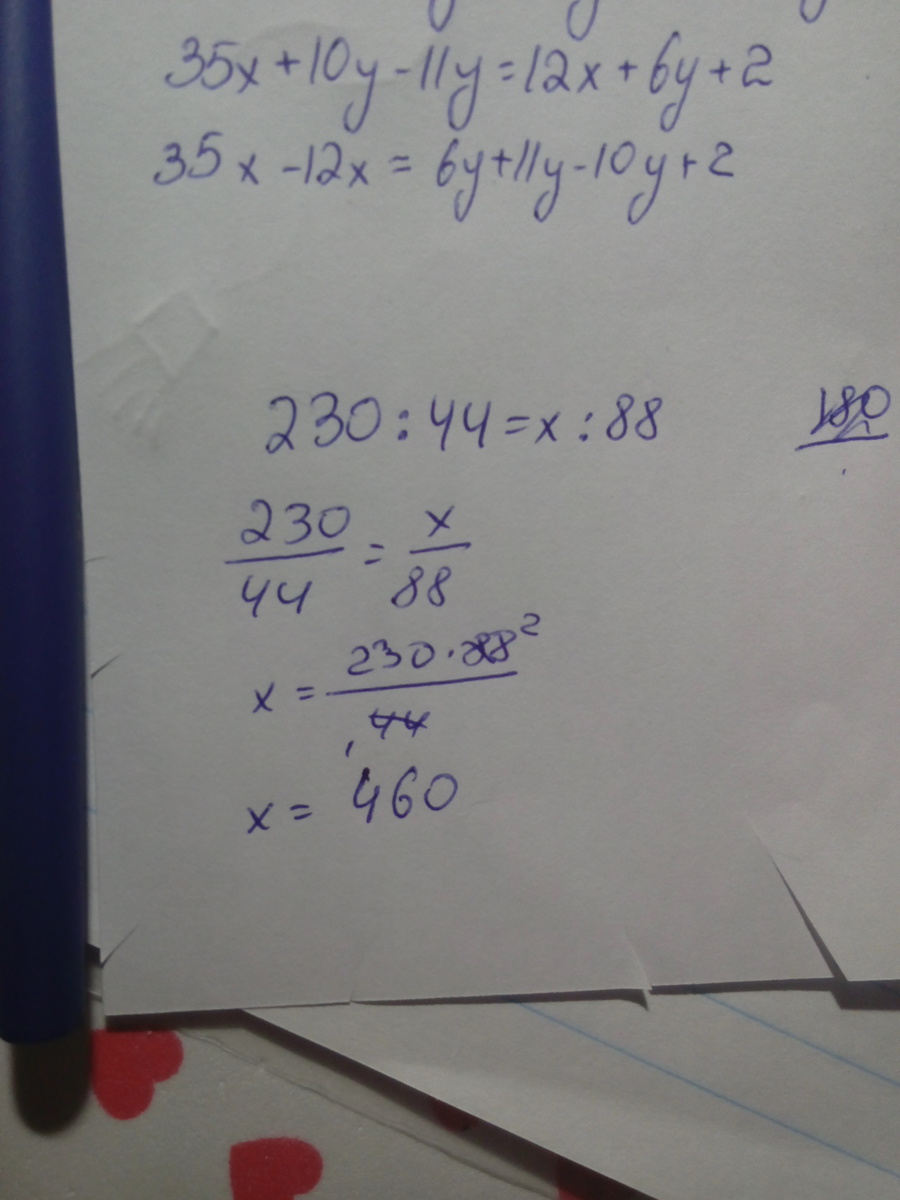 35x+10y-11y=12x+6y+2
35x-12x=6y+11y-10y+2
230:44=x:88
230/44 = x/88
x = 230·88²/44
x = 460